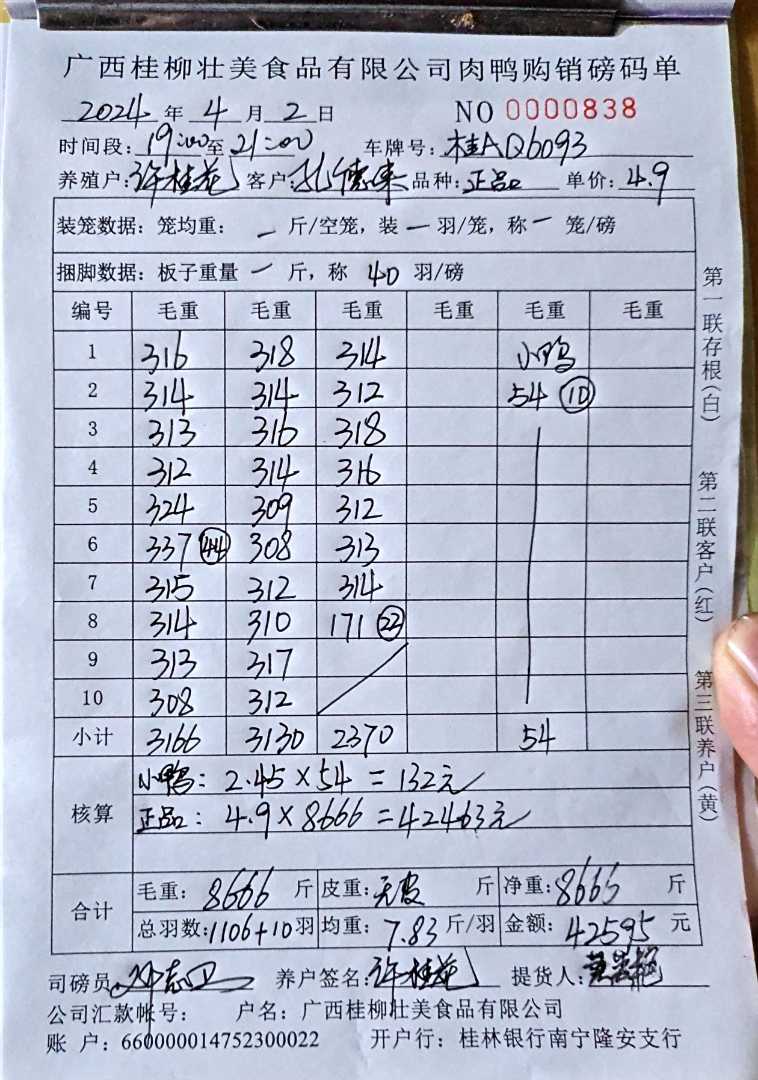 广西桂柳壮美食品有限公司肉鸭购销磅码单
2024 年 4 月 2 日 NO 0000838
时间段: 19:00 至 21:00 车牌号: 桂AQ6093
养殖户: 许桂花 客户: 孔德来 品种: 正品 单价: 4.9
装笼数据: 笼均重: 一 斤/空笼, 装 一 羽/笼, 称 一 笼/磅
捆脚数据: 板子重量 一 斤, 称 40 羽/磅
编号 毛重 毛重 毛重 毛重 毛重 毛重
1 316 318 314 小鸭
2 314 314 312 54 ⑩
3 313 316 318
4 312 314 316
5 324 309 312
6 337 ㊹ 308 313
7 315 312 314
8 314 310 171 ㉒
9 313 317
10 308 312
小计 3166 3130 2370 54
核算 小鸭: 2.45×54=132元
正品: 4.9×8666=42463元
合计 毛重: 8666 斤 皮重: 无皮 斤 净重: 8666 斤
总羽数: 1106+10 羽 均重: 7.83 斤/羽 金额: 42595 元
司磅员 养户签名: 许桂花 提货人:
公司汇款帐号: 户名: 广西桂柳壮美食品有限公司
账 户: 660000014752300022 开户行: 桂林银行南宁隆安支行
第一联存根(白)
第二联客户(红)
第三联养户(黄)